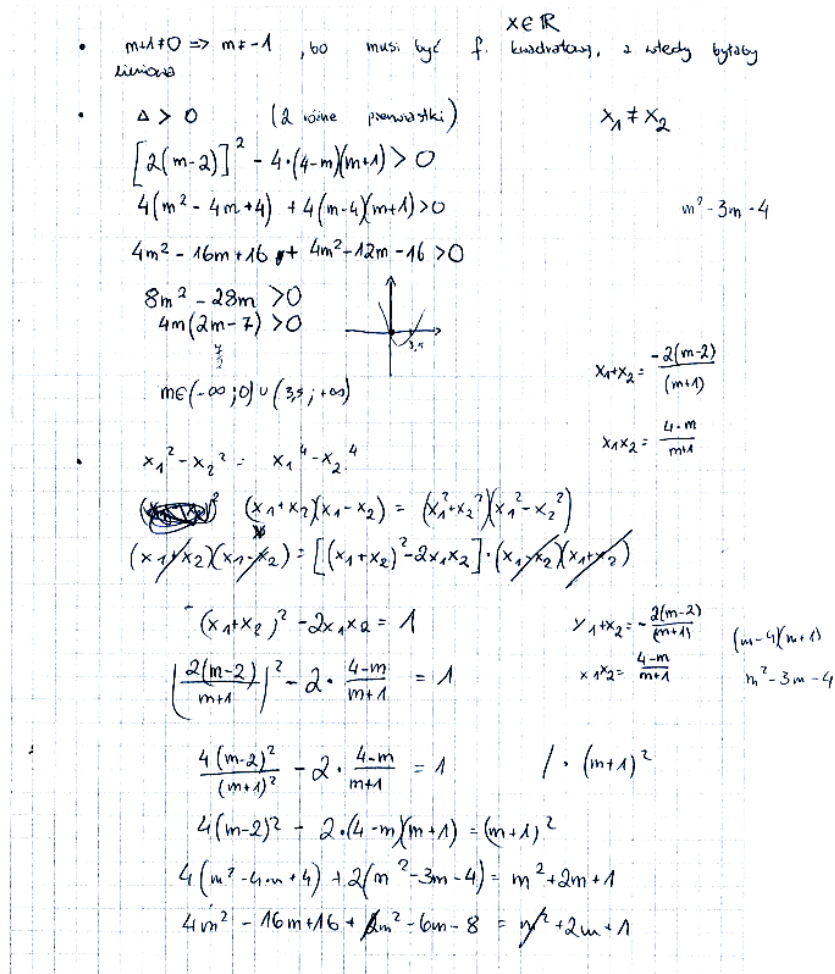 x∈ℝ
• m+1≠0 => m≠-1 , bo musi być f. kwadratowa, a wtedy byłaby
liniowa
• Δ > 0 (2 różne pierwiastki) x₁ ≠ x₂
[2(m-2)]² - 4·(4-m)(m+1) > 0
4(m² - 4m+4) + 4(m-4)(m+1)>0 m²-3m-4
4m² - 16m+16 + 4m²-12m-16 >0
8m² - 28m >0
4m(2m-7) >0
7/2
3,5
m∈(-∞;0)∪(3,5;+∞)
x₁+x₂= -2(m-2)/(m+1)
x₁x₂= (4-m)/(m+1)
• x₁² - x₂² = x₁⁴ - x₂⁴
(x₁+x₂)(x₁-x₂) = (x₁²+x₂²)(x₁²-x₂²)
(x₁+x₂)(x₁-x₂) = [(x₁+x₂)²-2x₁x₂]·(x₁-x₂)(x₁+x₂)
(x₁+x₂)² - 2x₁x₂ = 1 x₁+x₂= -2(m-2)/(m+1) (m-4)(m+1)
(2(m-2)/(m+1))² - 2· (4-m)/(m+1) = 1 x₁x₂= (4-m)/(m+1) m²-3m-4
4(m-2)²/(m+1)² - 2· (4-m)/(m+1) = 1 /·(m+1)²
4(m-2)² - 2·(4-m)(m+1) = (m+1)²
4(m²-4m+4) + 2(m²-3m-4) = m²+2m+1
4m² - 16m+16 + 2m² - 6m - 8 = m² + 2m + 1